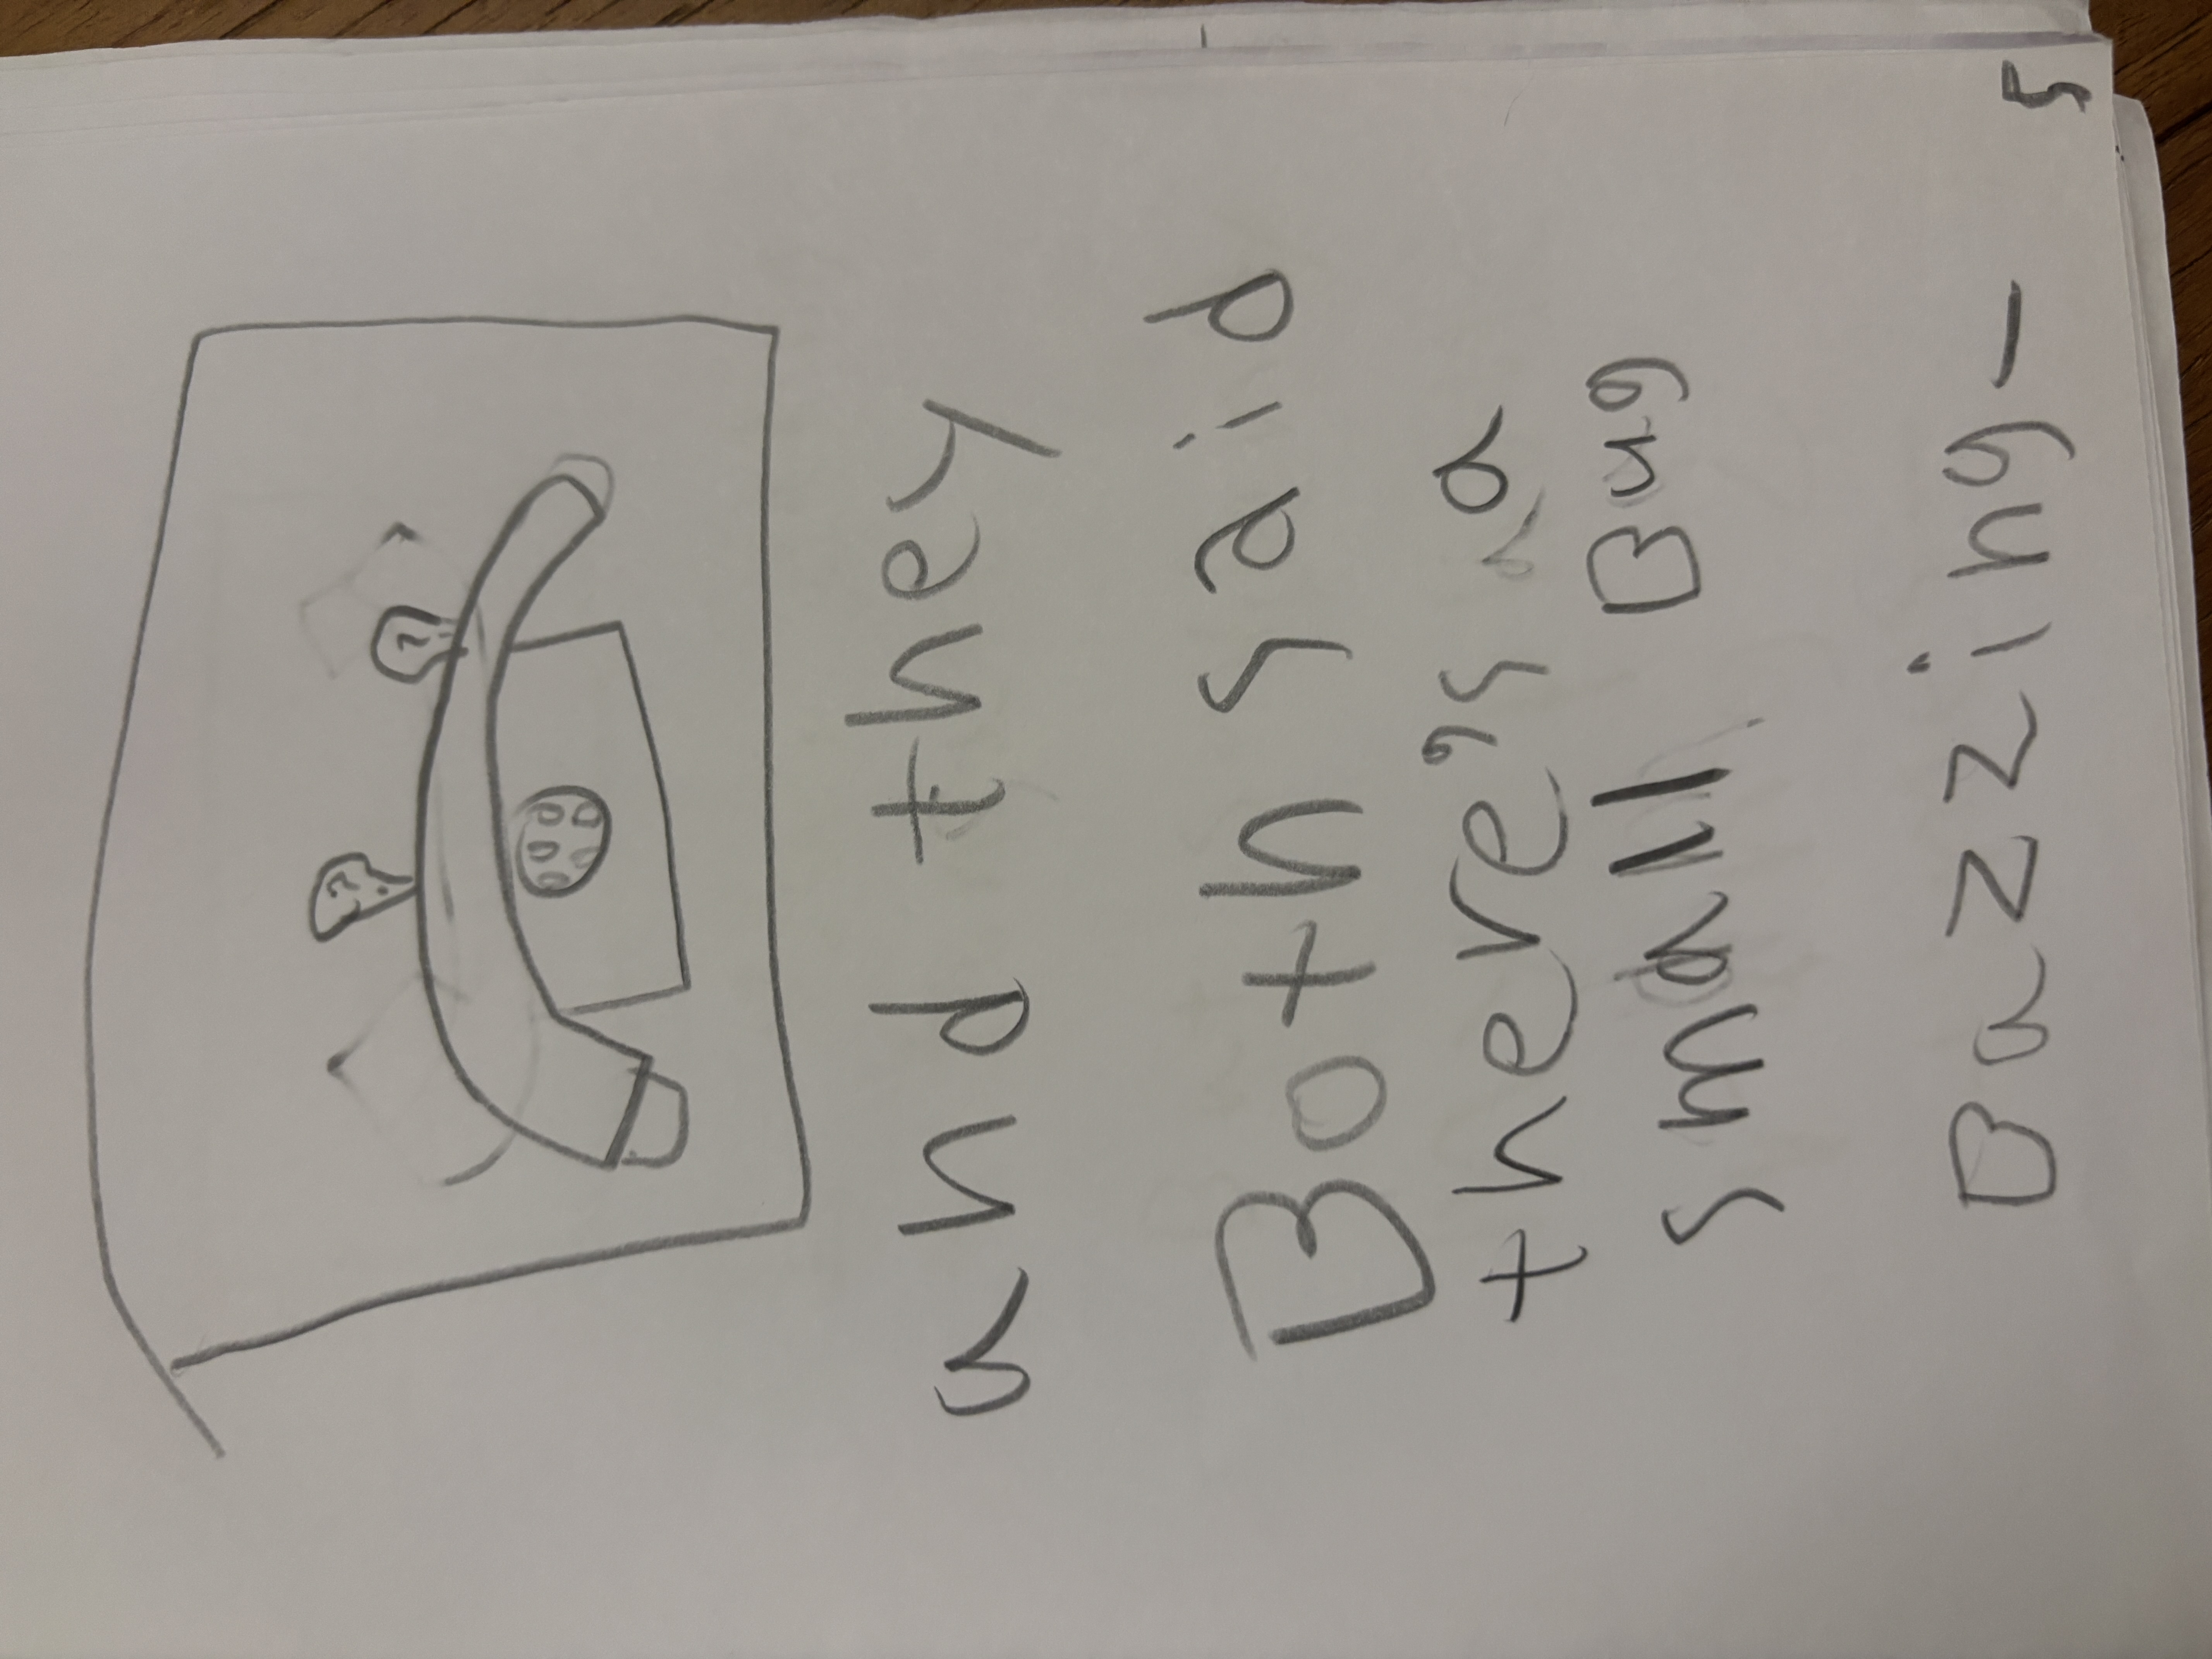 ?
?
and they
Both said
there's a
small Bug
Bazzing-
5